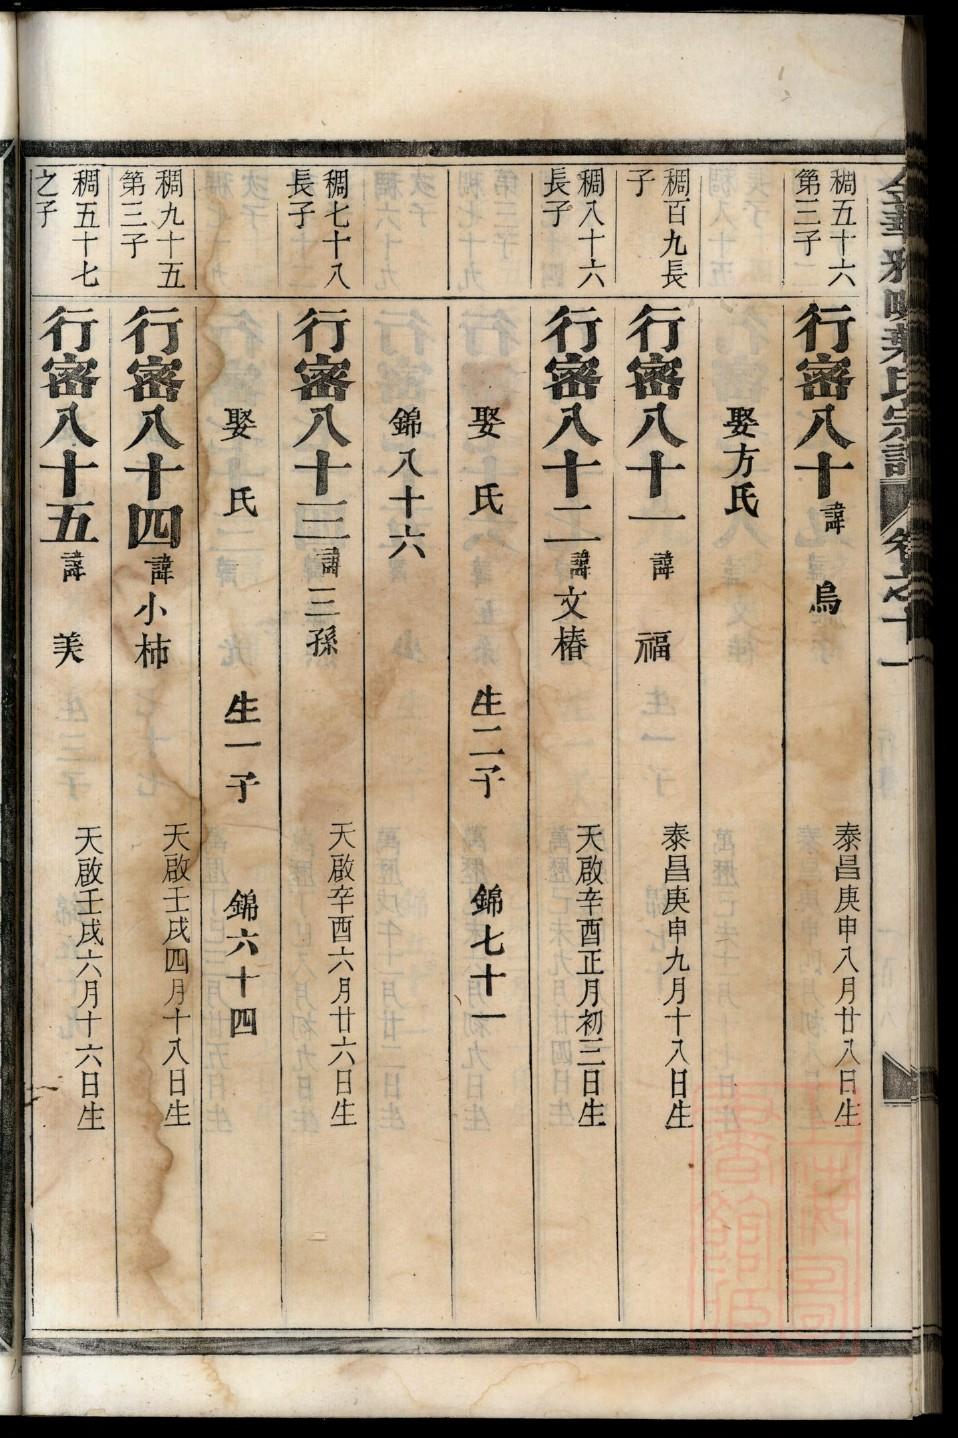 葉氏宗譜 卷之十一
稠五十六
第三子
行密八十 諱 烏 泰昌庚申八月廿八日生
娶方氏
稠百九長
子
行密八十一 諱 福 泰昌庚申九月十八日生
稠八十六
長子
行密八十二 諱文椿 天啟辛酉正月初三日生
娶 氏 生二子 錦七十一
錦八十六
稠七十八
長子
行密八十三 諱三孫 天啟辛酉六月廿六日生
娶 氏 生一子 錦六十四
稠九十五
第三子
行密八十四 諱小柿 天啟壬戌四月十八日生
稠五十七
之子
行密八十五 諱 美 天啟壬戌六月十六日生